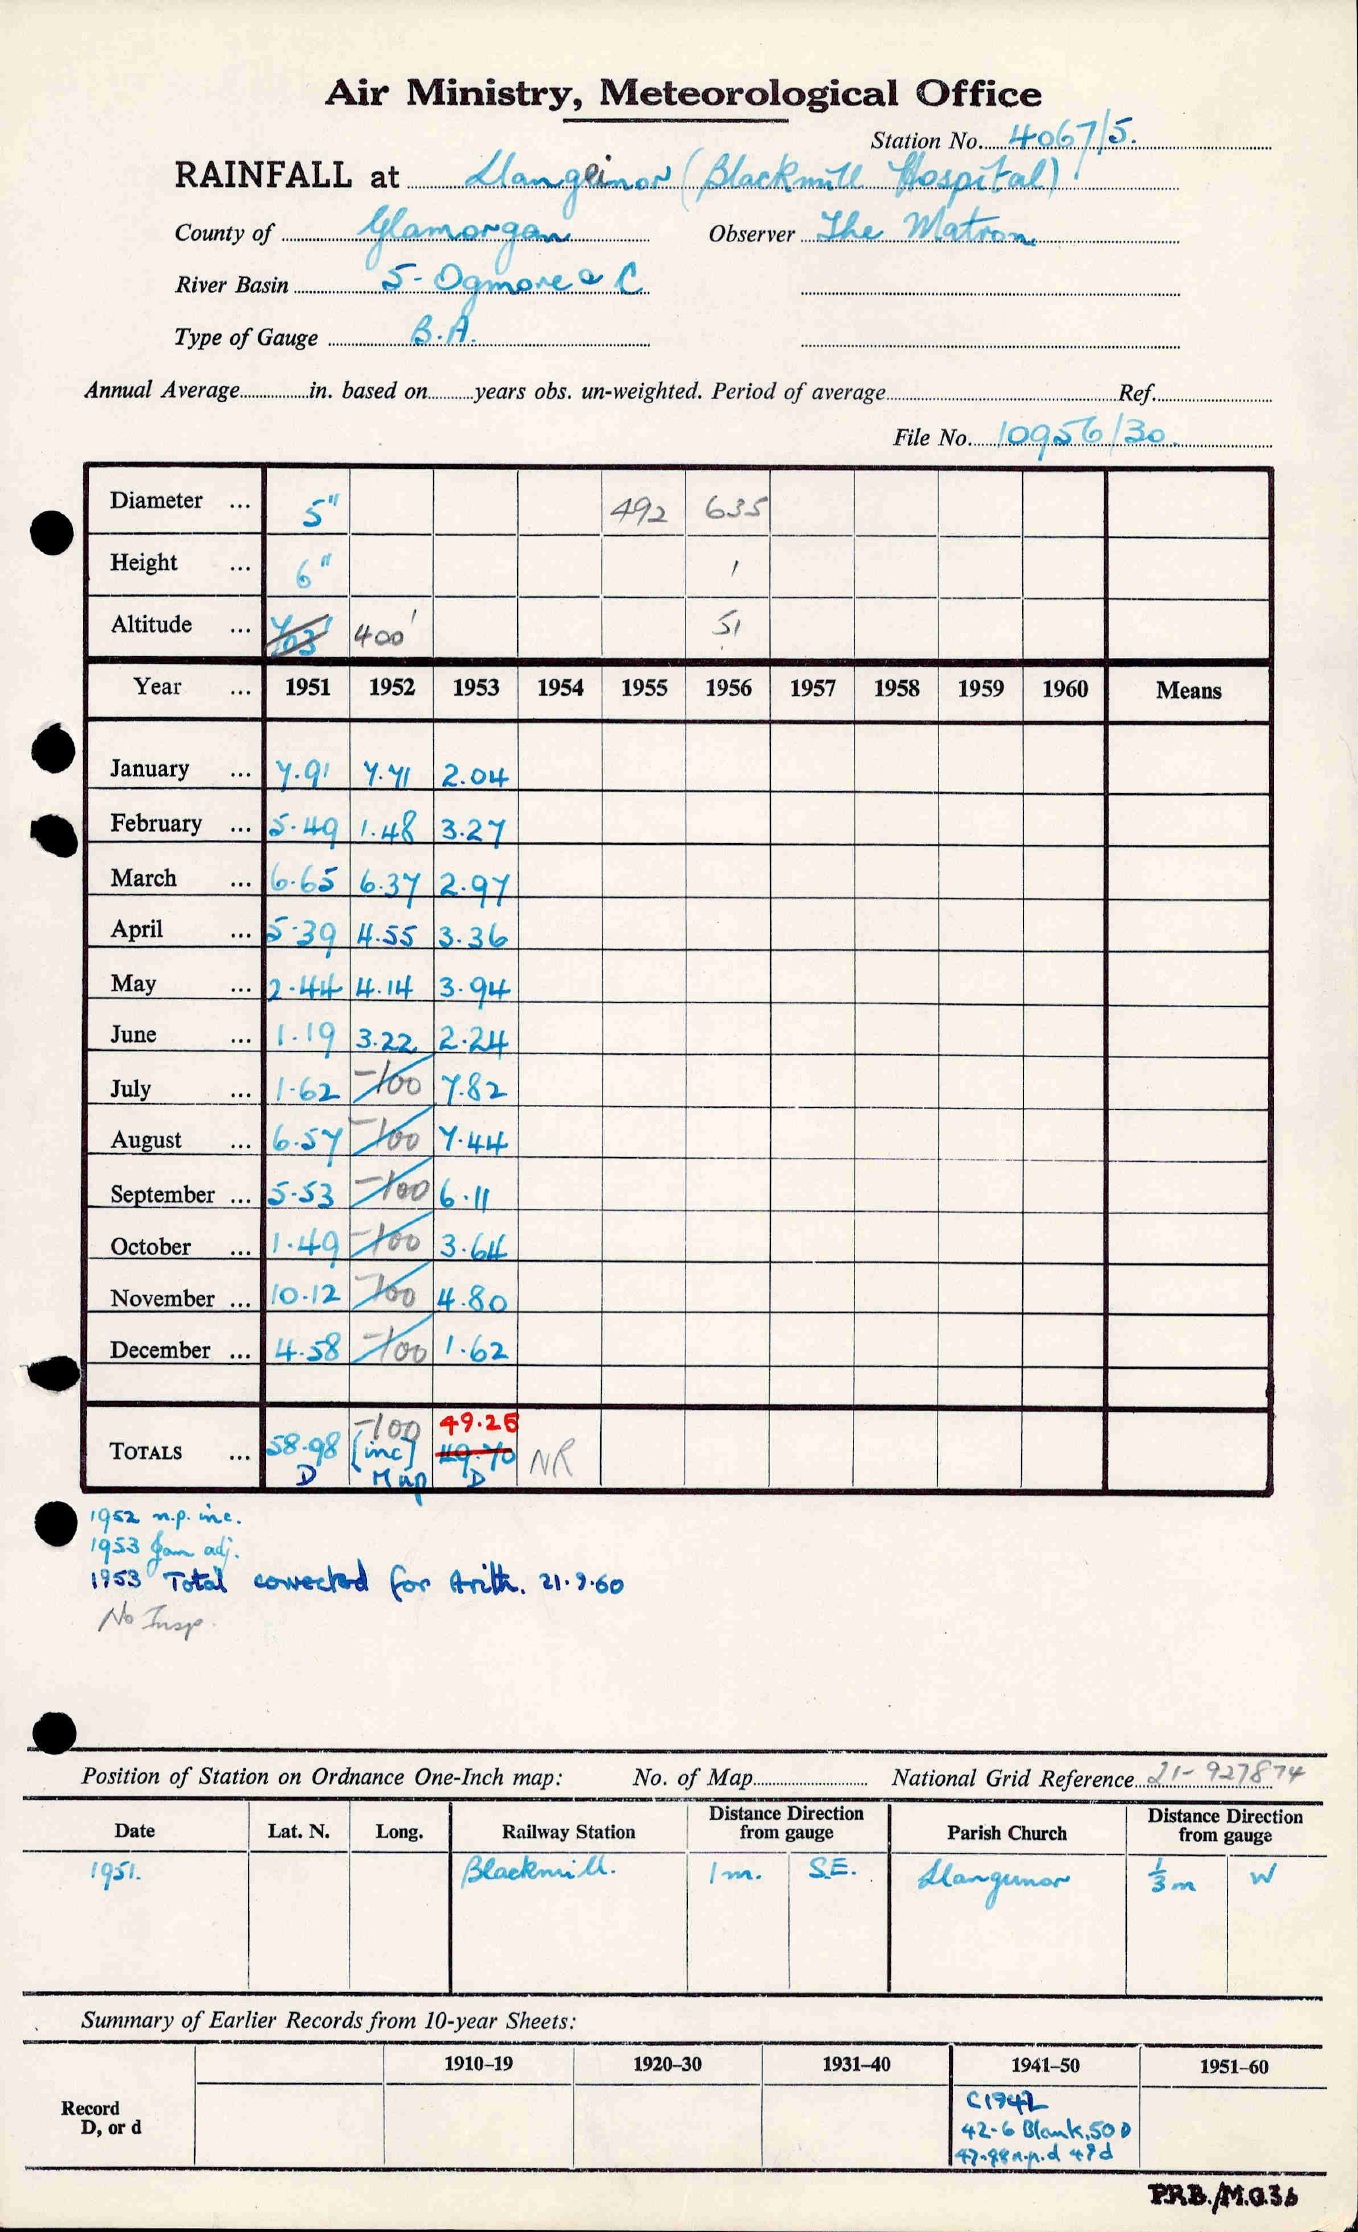 Air Ministry, Meteorological Office
Station No. 4067/5.
RAINFALL at Llangeinor (Blackmill Hospital)
County of Glamorgan Observer The Matron
River Basin 5- Ogmore & C
Type of Gauge B.A.
Annual Average in. based on years obs. un-weighted. Period of average Ref.
File No. 10956/30.
Diameter ... 5" 492 635
Height ... 6" 1
Altitude ... 400' 51
Year ... 1951 1952 1953 1954 1955 1956 1957 1958 1959 1960 Means
January ... 7.91 7.71 2.04
February ... 5.49 1.48 3.27
March ... 6.65 6.37 2.97
April ... 5.39 4.55 3.36
May ... 2.44 4.14 3.94
June ... 1.19 3.22 2.24
July ... 1.62 -100 7.82
August ... 6.57 -100 7.44
September ... 5.53 -100 6.11
October ... 1.49 -100 3.64
November ... 10.12 -100 4.80
December ... 4.58 -100 1.62
-100 49.25
TOTALS ... 58.98 [inc] 49.70 NR
D M np D
1952 n.p. inc.
1953 Jan adj.
1953 Total corrected for Arith. 21.9.60
No Insp.
Position of Station on Ordnance One-Inch map: No. of Map National Grid Reference 21-927874
Date Lat. N. Long. Railway Station Distance Direction from gauge Parish Church Distance Direction from gauge
1951. Blackmill. 1 m. S.E. Llangeinor 1/3 m W
Summary of Earlier Records from 10-year Sheets:
1910–19 1920–30 1931–40 1941–50 1951–60
Record
D, or d
C1942
42-6 Blank, 50 D
47-48 n.p.d 49 d
P.R.B./M.O.36